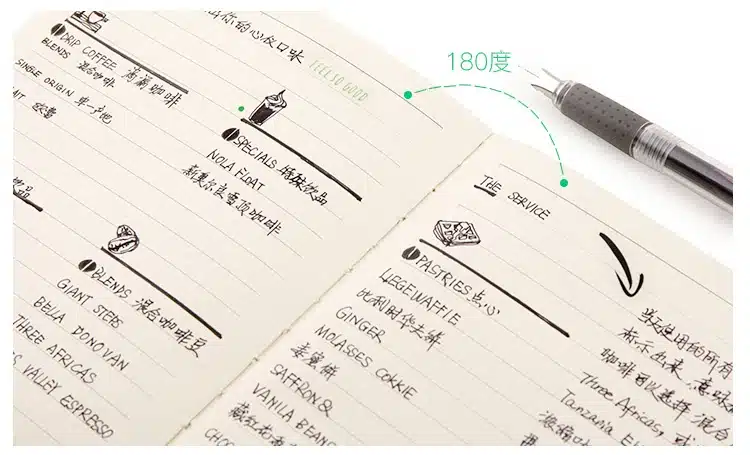 你的心仪口味
FEEL SO GOOD
180度
DRIP COFFEE 滴漏咖啡
BLENDS 混合咖啡
SINGLE ORIGIN 单一产地
SPECIALS 特殊饮品
NOLA FLOAT
新奥尔良雪顶咖啡
饮品
BLENDS 混合咖啡豆
GIANT STEPS
BELLA DONOVAN
THREE AFRICAS
VALLEY ESPRESSO
THE SERVICE
PASTRIES 点心
LIEGEWAFFIE
比利时华夫饼
GINGER
MOLASSES COKKIE
姜蜜饼
SAFFRON &
VANILA BEAN
藏红花香
CHOC
使用的所有
标示出来,意味
咖啡可以选择混合
Three Africas, 或
Tanzania E
浓缩